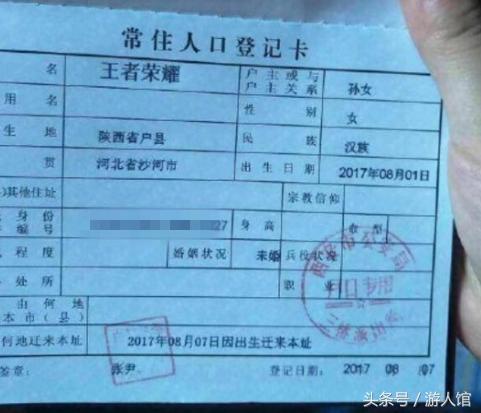 常住人口登记卡
名 王者荣耀 户主或与户主关系 孙女
用名 性别 女
生地 陕西省户县 民族 汉族
贯 河北省沙河市 出生日期 2017年08月01日
其他住址 宗教信仰
身份编号 27 身高 血型
程度 婚姻状况 未婚 兵役状况
处所 职业
由何地
本市(县)
何地迁来本址 2017年08月07日因出生迁来本址
签章: 张尹 登记日期: 2017 08 /07
头条号/游人馆